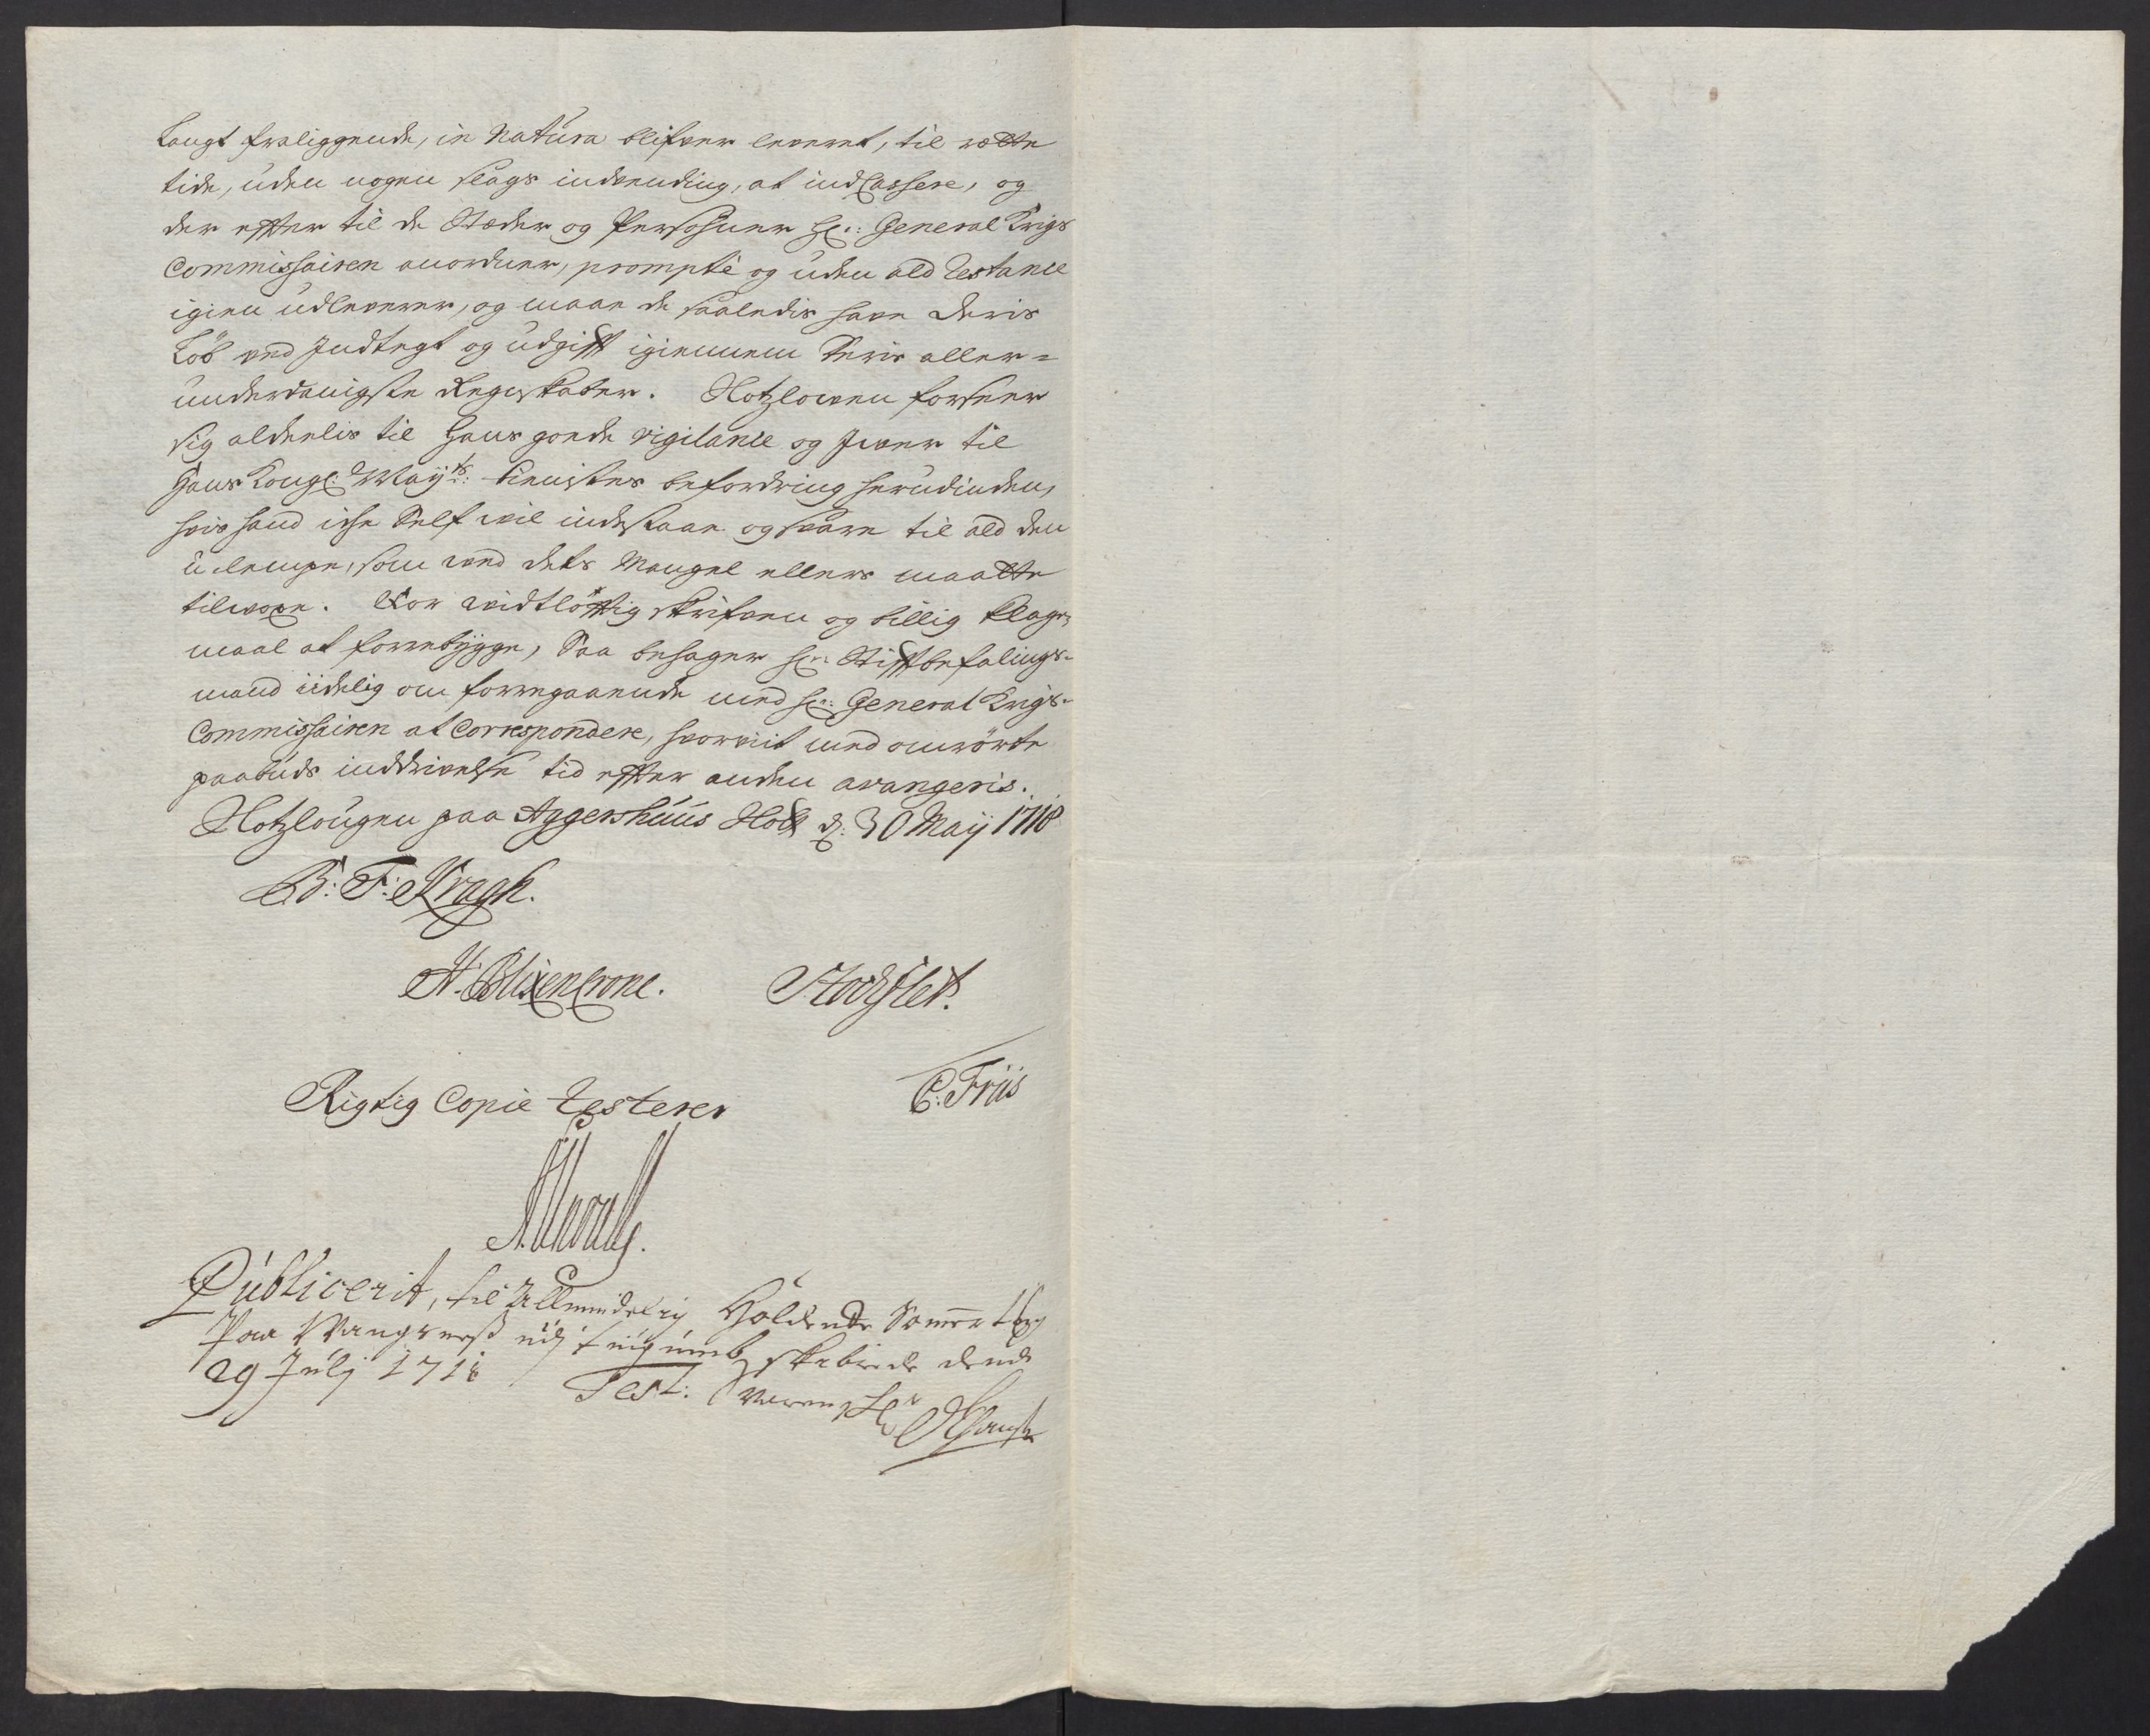 Langt fraliggende, in Natura blifver leveret, til rette
tide, uden nogen slags indvending, at indCassere, og
der effter til de Stæder og Persohner Hr: General Krigs
Commissairen anordner, prompte og uden ald Restance
igien udleverer, og maae de saaledis have deris
Løb ved Indtegt og udgifft igiennem deris aller=
underdanigste Regnskaber. Slotzloven forseer
sig aldeelis til Hans goede vigilance og Iver til
Hans Kongl: May.ts: tienistes befordring herudinden,
hvis hand iche Self vil indestaae og svare til ald den
ulempe, som ved dets Mangel ellers maatte
tilvoxe. For vidtløfftig skrifven og billig klage=
maal at forrebygge, Saa behager Hr: Stifftbefalings-
mand iidelig om forregaaende med Hr: General Krigs-
Commissairen at Correspondere, hvorviit med omrørte
paabuds inddrivelse tid effter anden avangeris.
Slotzlougen paa Aggershuus Slott d: 30 Maij 1718
B: F: Kragh.
H. Blixencrone. Stochflet.
C: Friis
Rigtig Copie Testerer
Publicerit, til Allmindelig Holdende Sommerting
paa Wangsnæß skibrede dend
29 Julj 1718 Test: